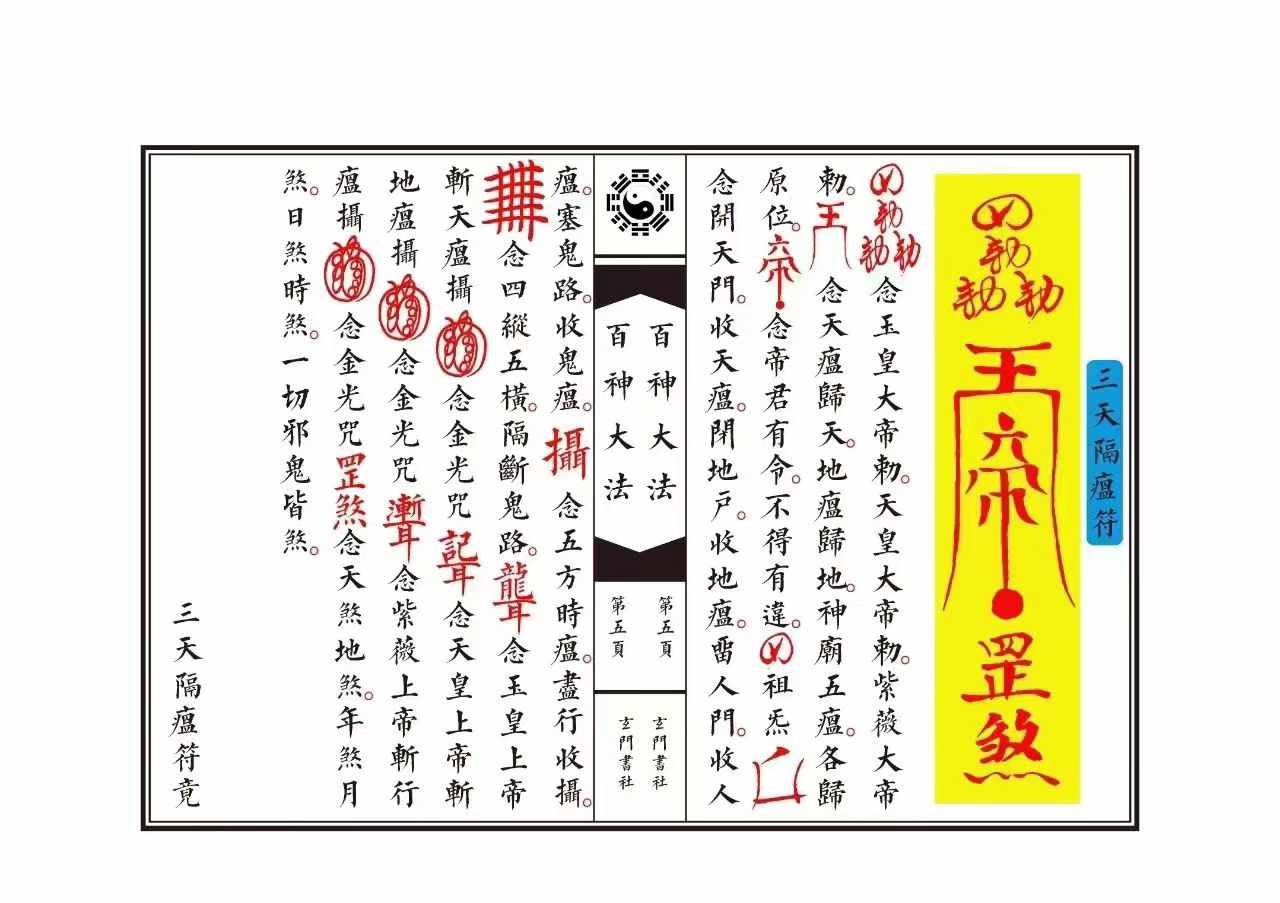 三天隔瘟符
勅
勅勅
王
六帝
罡煞
勅
勅勅念玉皇大帝勅。天皇大帝勅。紫薇大帝
勅。王念天瘟歸天。地瘟歸地。神廟五瘟。各歸
原位。六帝念帝君有令。不得有違。祖炁
念開天門。收天瘟。閉地戶。收地瘟。畱人門。收人
百神大法
第五頁
玄門書社
百神大法
第五頁
玄門書社
瘟。塞鬼路。收鬼瘟。攝念五方時瘟。盡行收攝。
念四縱五橫。隔斷鬼路。龍耳念玉皇上帝
斬天瘟攝念金光咒記耳念天皇上帝斬
地瘟攝念金光咒漸耳念紫薇上帝斬行
瘟攝念金光咒罡煞念天煞地煞。年煞月
煞。日煞時煞。一切邪鬼皆煞。
三天隔瘟符竟